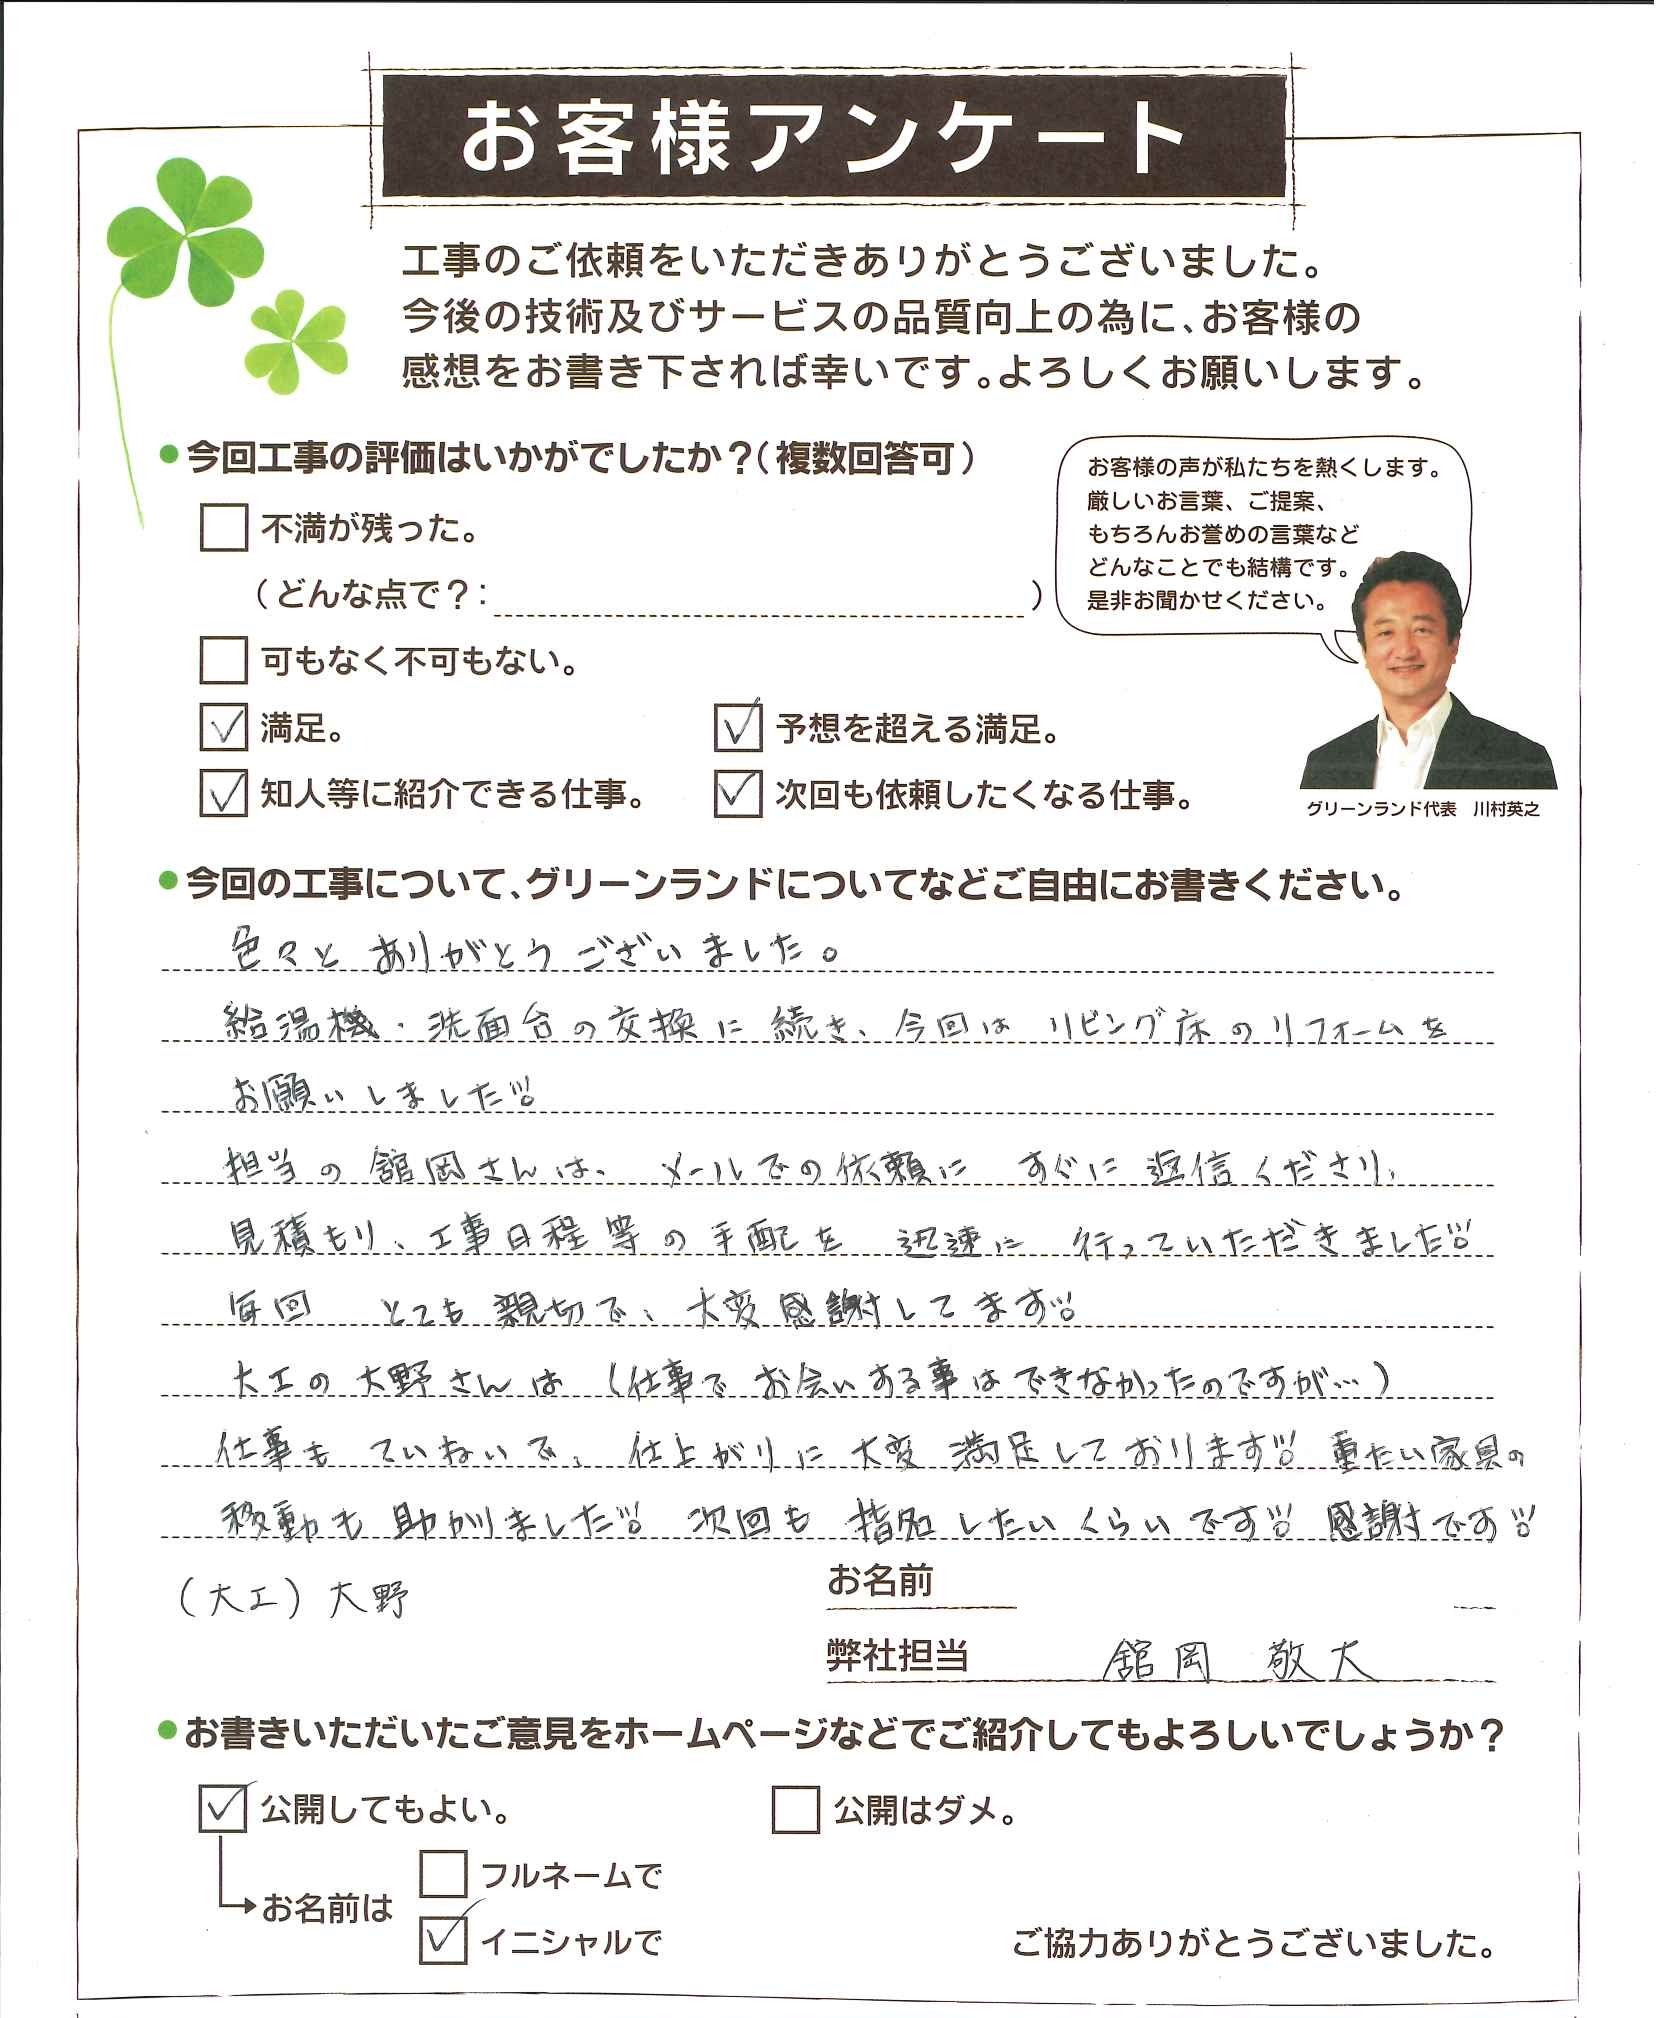 お客様アンケート
工事のご依頼をいただきありがとうございました。
今後の技術及びサービスの品質向上の為に、お客様の
感想をお書き下されば幸いです。よろしくお願いします。
●今回工事の評価はいかがでしたか?(複数回答可)
お客様の声が私たちを熱くします。
厳しいお言葉、ご提案、
もちろんお誉めの言葉など
どんなことでも結構です。
是非お聞かせください。
グリーンランド代表 川村英之
□ 不満が残った。
(どんな点で?: )
□ 可もなく不可もない。
☑ 満足。 ☑ 予想を超える満足。
☑ 知人等に紹介できる仕事。 ☑ 次回も依頼したくなる仕事。
●今回の工事について、グリーンランドについてなどご自由にお書きください。
色々と ありがとうございました。
給湯機・洗面台の交換に続き、今回は リビング床のリフォームを
お願いしました!!
担当の舘岡さんは、メールでの依頼に すぐに返信くださり、
見積もり、工事日程等の手配を 迅速に 行っていただきました!!
毎回 とても親切で、大変感謝してます!!
大工の大野さんは(仕事で お会いする事はできなかったのですが…)
仕事も ていねいで、仕上がりに大変満足しております!! 重たい家具の
移動も助かりました!! 次回も 指名したいくらいです!! 感謝です!!
(大工)大野
お名前
弊社担当 舘岡 敬大
●お書きいただいたご意見をホームページなどでご紹介してもよろしいでしょうか?
☑ 公開してもよい。 □ 公開はダメ。
→お名前は □ フルネームで
☑ イニシャルで
ご協力ありがとうございました。